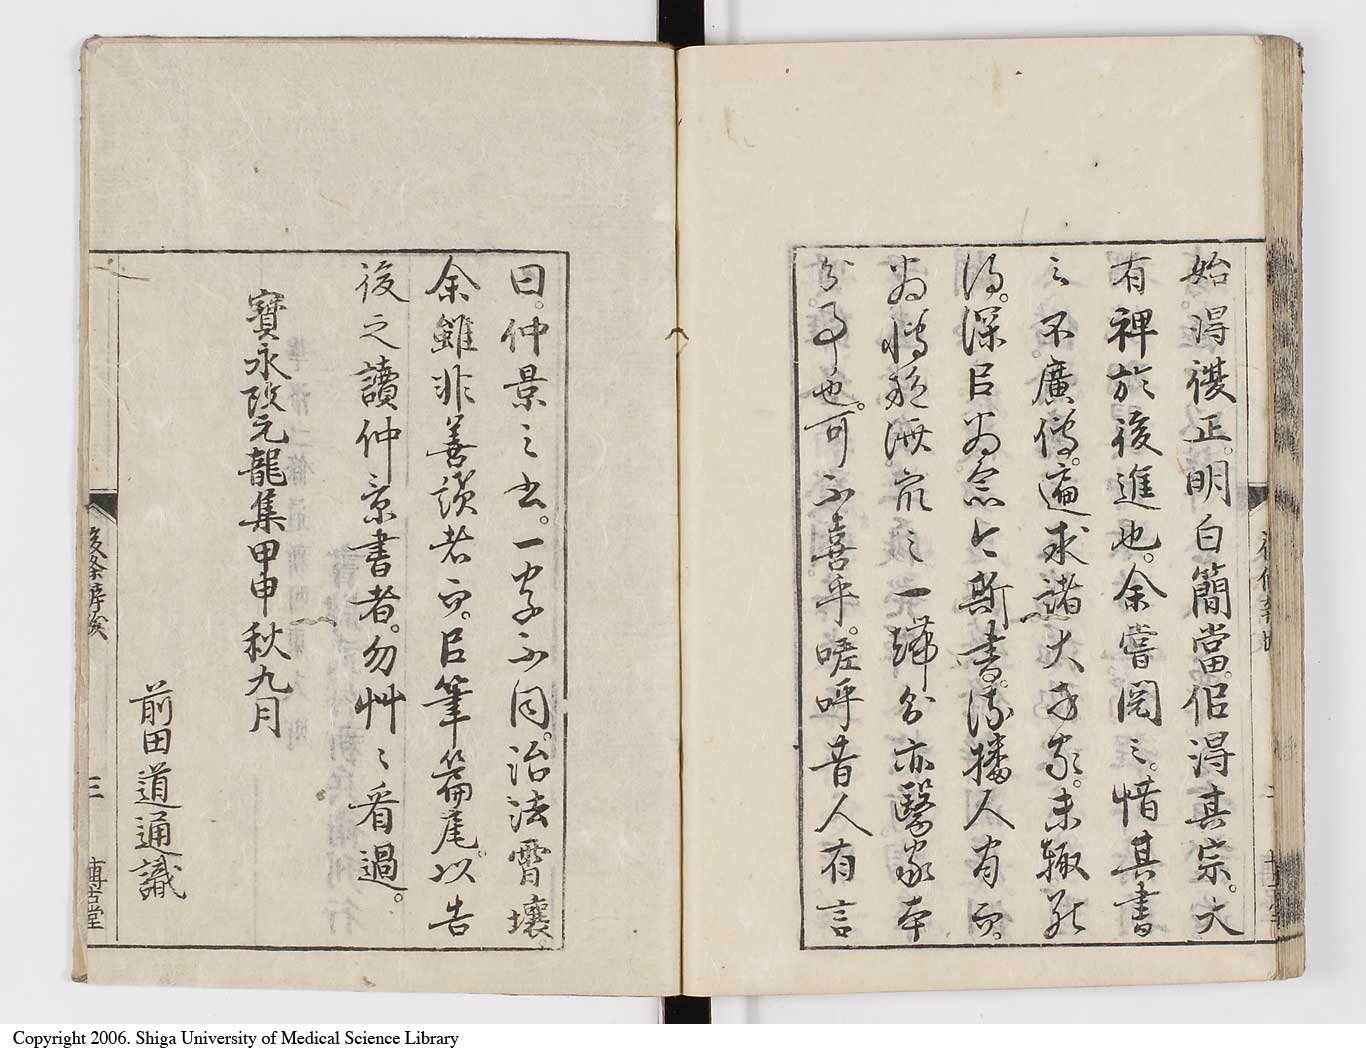 始得復正。明白簡當。得其宗。大
有裨於後進也。余嘗閲之。惜其書
之不廣傳。遍求諸大方家。未輒能
得。深以為念。今斯書。流播人
為博施濟衆之一端。分亦醫家本
分事也。可不喜乎。嗟呼昔人有言
曰。仲景之書。一字不同。治法霄壤
余雖非善讀者。以筆篇尾。以告
後之讀仲景書者。勿艸々看過。
寶永改元龍集甲申秋九月
前田道通識
後條辨跋 三 博古堂
Copyright 2006. Shiga University of Medical Science Library